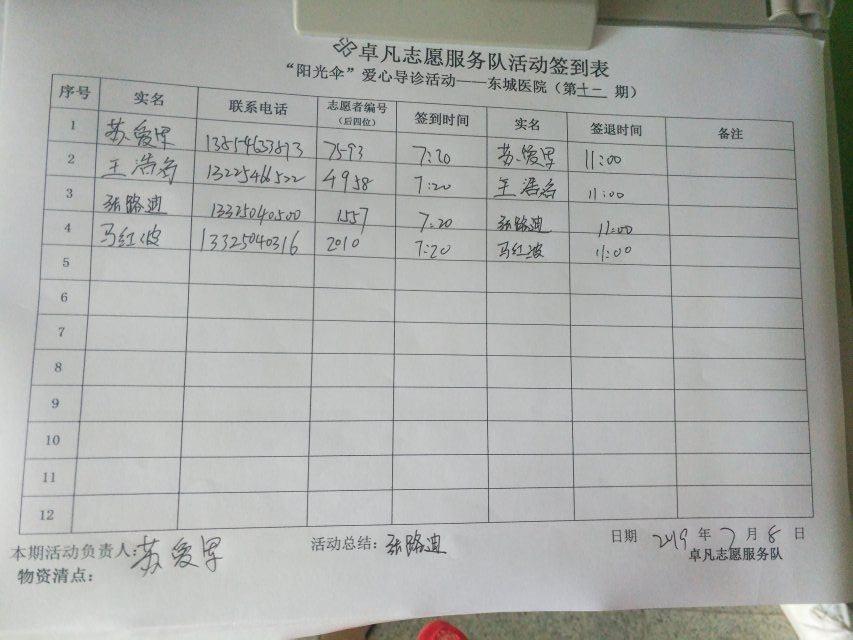 卓凡志愿服务队活动签到表
“阳光伞”爱心导诊活动——东城医院（第十二 期）
序号 实名 联系电话 志愿者编号（后四位） 签到时间 实名 签退时间 备注
1 苏爱军 7593 7:20 苏爱军 11:00
2 王浩名 13225466522 4958 7:20 王浩名 11:00
3 张路迪 13325040500 1557 7:20 张路迪 11:00
4 马红波 13325040316 2010 7:20 马红波 11:00
5
6
7
8
9
10
11
12
本期活动负责人：苏爱军 活动总结：张路迪 日期 2019 年 7 月 8 日
物资清点： 卓凡志愿服务队